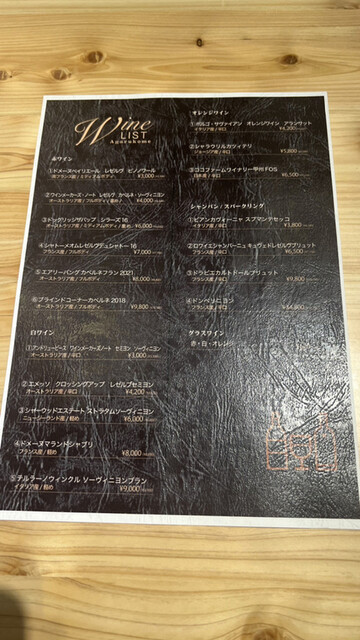 Wine
LIST
Agarahome
赤ワイン
①ドメーヌペイリエール レゼルヴ ピノノワール
南フランス産 / ミディアムボディ ¥3,000
②ワインメーカーズ・ノート レゼルヴ カベルネ・ソーヴィニヨン
オーストラリア産 / フルボディ ¥4,000
¥6,000
④シャトーメオムレゼルヴデュシャトー 16
フランス産 / フルボディ ¥7,000
⑤エアリーバンク カベルネフラン 2021
オーストラリア産 / フルボディ ¥8,000
⑥ブラインドコーナーカベルネ 2018
オーストラリア産 / フルボディ ¥9,800
白ワイン
①アンドリューピース ワインメーカーズノート セミヨン ソーヴィニヨン
オーストラリア産 / 軽め ¥3,000
②エメッソ クロッシングアップ レゼルブセミヨン
オーストラリア産 / 辛口 ¥4,200
③シャーウッドエステート ストラタムソーヴィニヨン
ニュージーランド産 / 軽め ¥6,000
④ドメーヌマランドシャブリ
フランス産 / 軽め ¥8,000
⑤テルラーノウィンクル ソーヴィニヨンブラン
イタリア産 / 軽め ¥9,000
オレンジワイン
①ボルゴ・サヴァイアン オレンジワイン アランサット
イタリア産 / 辛口 ¥4,200
②シャラウリルカツィテリ
ジョージア産 / 辛口 ¥5,800
③ココファームワイナリー甲州 FOS
日本産 / 辛口 ¥6,500
シャンパン / スパークリング
①ビアンカヴィーニャ スプマンテセッコ
イタリア産 / 辛口 ¥3,800
②ロワイエシャンパーニュキュヴェドレゼルヴブリュット
フランス産 / 辛口 ¥6,500
③ドラピエカルトドールブリュット
フランス産 / 辛口 ¥9,800
④ドンペリニヨン
フランス産 / 辛口
グラスワイン
赤・白・オレンジ